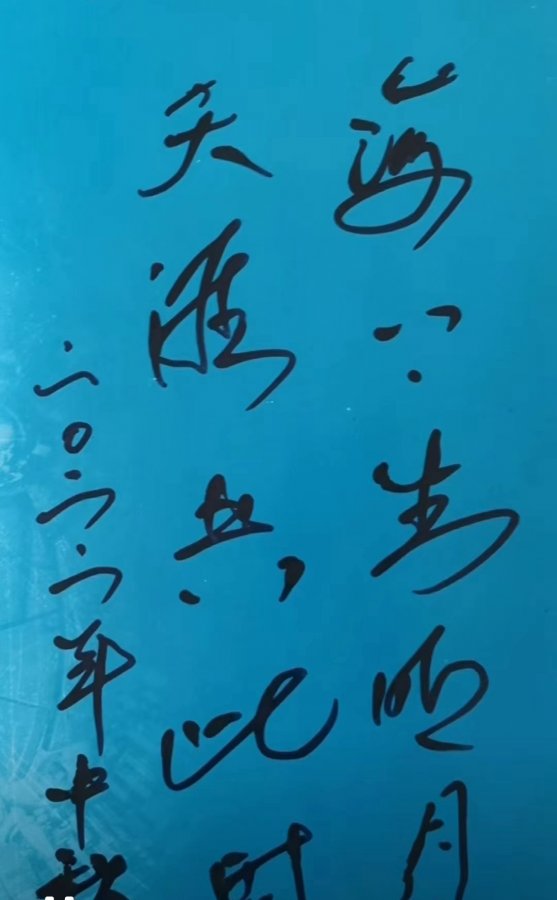 海上生明月
天涯共此时
二〇二二年中秋